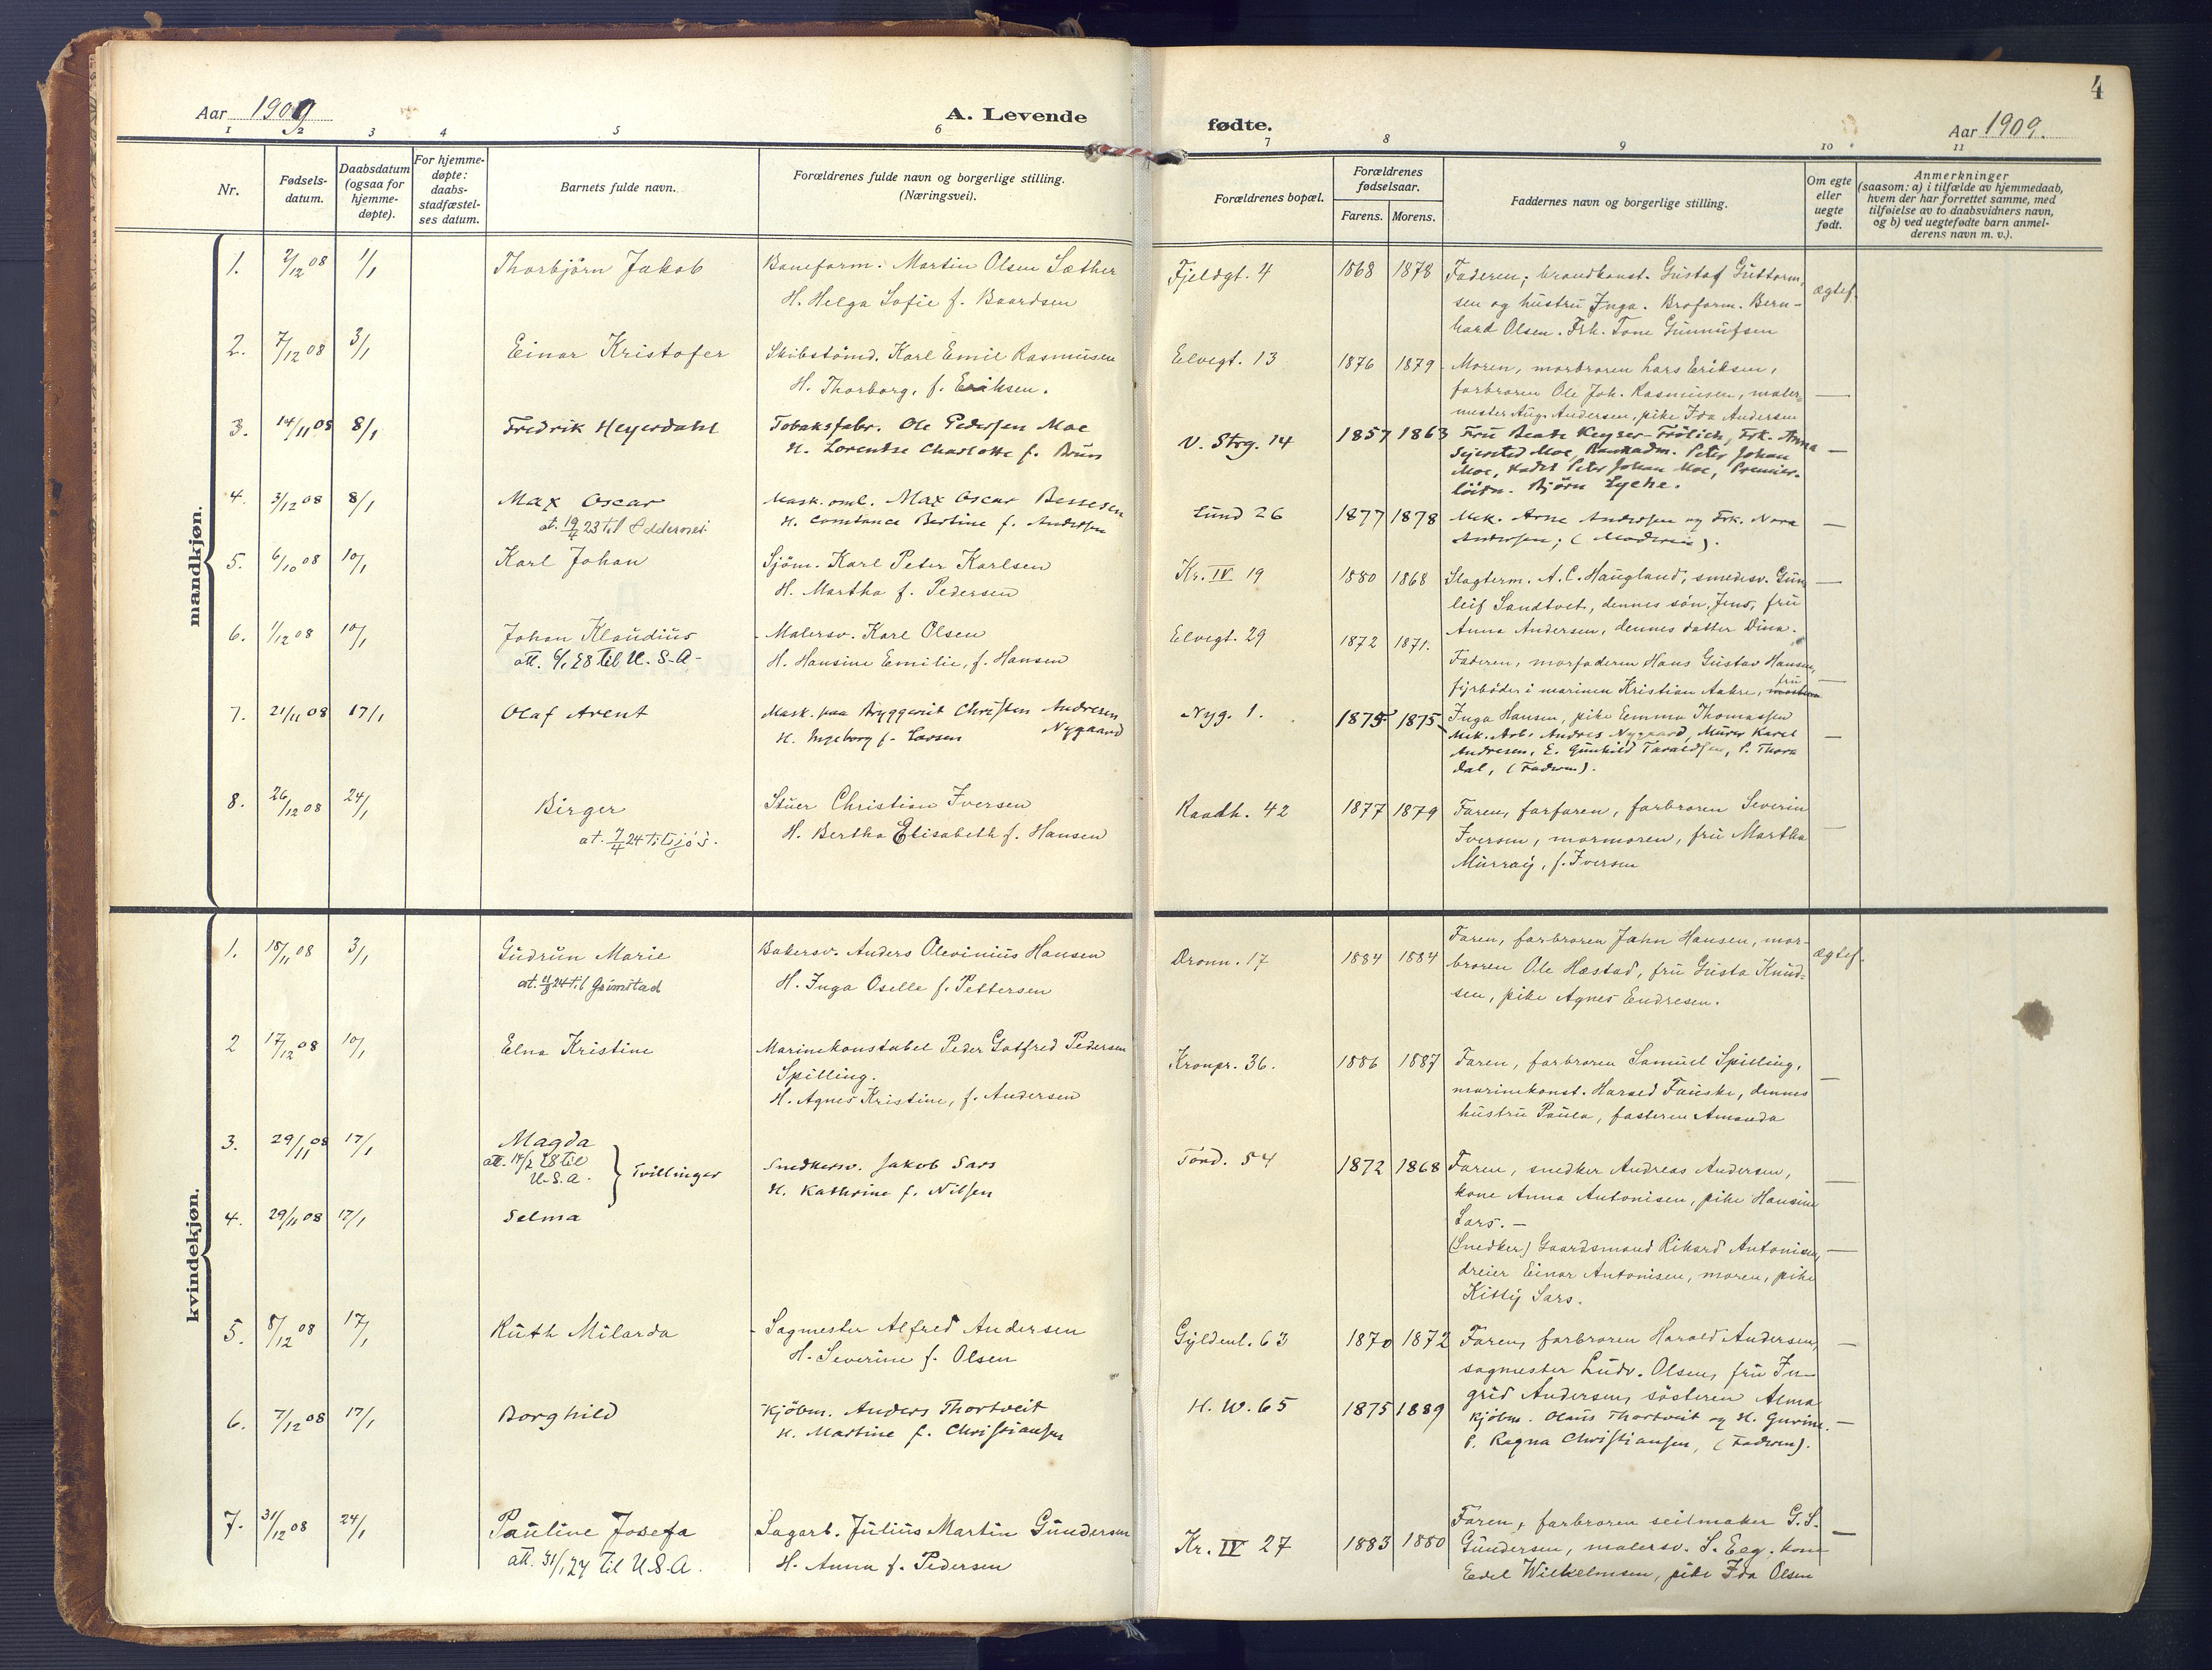 4
Aar 1909
A. Levende
fødte.
Aar 1909.
1 2 3 4 5 6 7 8 9 10 11
Nr.
Fødsels-
datum.
Daabsdatum
(ogsaa for
hjemme-
døpte).
For hjemme-
døpte:
daabs-
stadfæstel-
ses datum.
Barnets fulde navn.
Forældrenes fulde navn og borgerlige stilling.
(Næringsvei).
Forældrenes bopæl.
Forældrenes
fødselsaar.
Farens. Morens.
Faddernes navn og borgerlige stilling.
Om egte
eller
uegte
født.
Anmerkninger
(saasom: a) i tilfælde av hjemmedaab,
hvem der har forrettet samme, med
tilføielse av to daabsvidners navn,
og b) ved uegtefødte barn anmel-
derens navn m. v.).
mandkjøn.
1. 2/12 08 1/1 Thorbjörn Jakob
Baneform. Martin Olsen Sæther
H. Helga Sofie f. Baardsen
Fjeldgt. 4 1868 1878
Faderen, brandkonst. Gustaf Guttorm-
sen og hustru Inga. Broform. Bern-
hard Olsen. Frk. Tone Gunnufsen
ægtef.
2. 7/12 08 3/1 Einar Kristofer
Skibstömd. Karl Emil Rasmussen
H. Thorborg, f. Eriksen.
Elvegt. 13 1876 1879
Moren, morbroren Lars Eriksen,
farbroren Ole Joh. Rasmussen, maler-
mester Aug. Andersen, pike Ida Andersen
—
3. 14/11 08 8/1 Fredrik Heyerdahl
Tobaksfabr. Ole Pedersen Moe
H. Lorentse Charlotte f. Bruun
V. Strg. 14 1857 1863
Fru Beate Keyser-Frölich, Frk. Anna
Sejersted Moe, Bankadm. Peter Johan
Moe, Kadet Peter Johan Moe, Premier-
löitn. Björn Lyche.
—
4. 3/12 08 8/1 Max Oscar
at. 19/4 23 til Oddernes
Mask. oml. Max Oscar Bessesen
H. Constance Bertine f. Andersen
Lund 26 1877 1878
Mek. Arne Andersen og Frk. Nora
Andersen; (Moderen).
—
5. 6/10 08 10/1 Karl Johan
Sjöm. Karl Peter Karlsen
H. Martha f. Pedersen
Kr. IV 19 1880 1868
Slagterm. A. C. Haugland, smedesv. Gun
leif Sandtvet, dennes sön, Jens, fru
Anna Andersen, dennes datter Dina.
—
6. 1/12 08 10/1 Johan Klaudius
att. 6/1 28 til U.S.A.
Malersv. Karl Olsen
H. Hansine Emilie, f. Hansen
Elvegt. 29 1872 1871.
Faderen, morfaderen Hans Gustav Hansen,
fyrböder i marinen Kristian Aabre, fru
Inga Hansen, pike Emma Thomassen
—
7. 21/11 08 17/1 Olaf Arent
Mask. paa Bryggeriet Christen Andresen
Nygaard
H. Ingeborg f. Larsen
Nyg. 1. 1875 1875
Mek. Arb. Andres Nygaard, Murer Karel
Andresen, E. Gunhild Taraldsen, P. Thora
Dal, (Faderen).
—
8. 26/12 08 24/1 Birger
at. 7/4 24 til sjös.
Stuer Christian Iversen
H. Bertha Elisabeth f. Hansen
Raadh. 42 1877 1879
Faren, farfaren, farbroren Severin
Iversen, mormoren, fru Martha
Murray, f. Iversen
—
kvindekjøn.
1. 18/11 08 3/1 Gudrun Marie
Bakersv. Anders Olevinius Hansen
H. Inga Oselle f. Pettersen
Dronn. 17 1884 1884
Faren, farbroren Jahn Hansen, mor-
broren Ole Hæstad, fru Gusta Knud-
sen, pike Agnes Endresen.
ægtef.
2 17/12 08 10/1 Elna Kristine
Marinekonstabel Peder Gotfred Pedersen
Spilling.
H. Agnes Kristine, f. Andersen
Kronpr. 36. 1886 1887
Faren, farbroren Samuel Spilling,
marinekonst. Harald Fauske, dennes
hustru Paula, fasteren Amanda
—
3. 29/11 08 17/1 Magda
att. 14/2 28 til
U.S.A.
Tvillinger
Snedkersv. Jakob Sars
H. Kathrine f. Nilsen
Tord. 54 1872 1868
Faren, snedker Andreas Andersen,
kone Anna Antonisen, pike Hansine
Sars. —
—
4. 29/11 08 17/1 Selma
(Snedker) Gaardsmand Rikard Antonisen,
dreier Einar Antonisen, moren, pike
Kitty Sars.
—
5. 8/12 08 17/1 Ruth Milarda
Sagmester Alfred Andersen
H. Severine f. Olsen
Gyldenl. 63 1870 1872
Faren, farbroren Harald Andersen,
sagmester Ludv. Olsen, fru In-
grid Andersen, sösteren Alma
—
6. 7/12 08 17/1 Borghild
Kjöbm. Anders Thortveit
H. Martine f. Christiansen
H. W. 65 1875 1889
Kjöbm. Olaus Thortveit og H. Gurine.
P. Ragna Christiansen, (Faderen).
—
7. 31/12 08 24/1 Pauline Josefa
att. 31/1 27 til U.S.A.
Sagarb. Julius Martin Gundersen
H. Anna f. Pedersen
Kr. IV 27 1883 1880
Faren, farbroren seilmaker G. S.
Gundersen, malersv. S. Eeg, kone
Edel Wilhelmsen, pike Ida Olsen
—